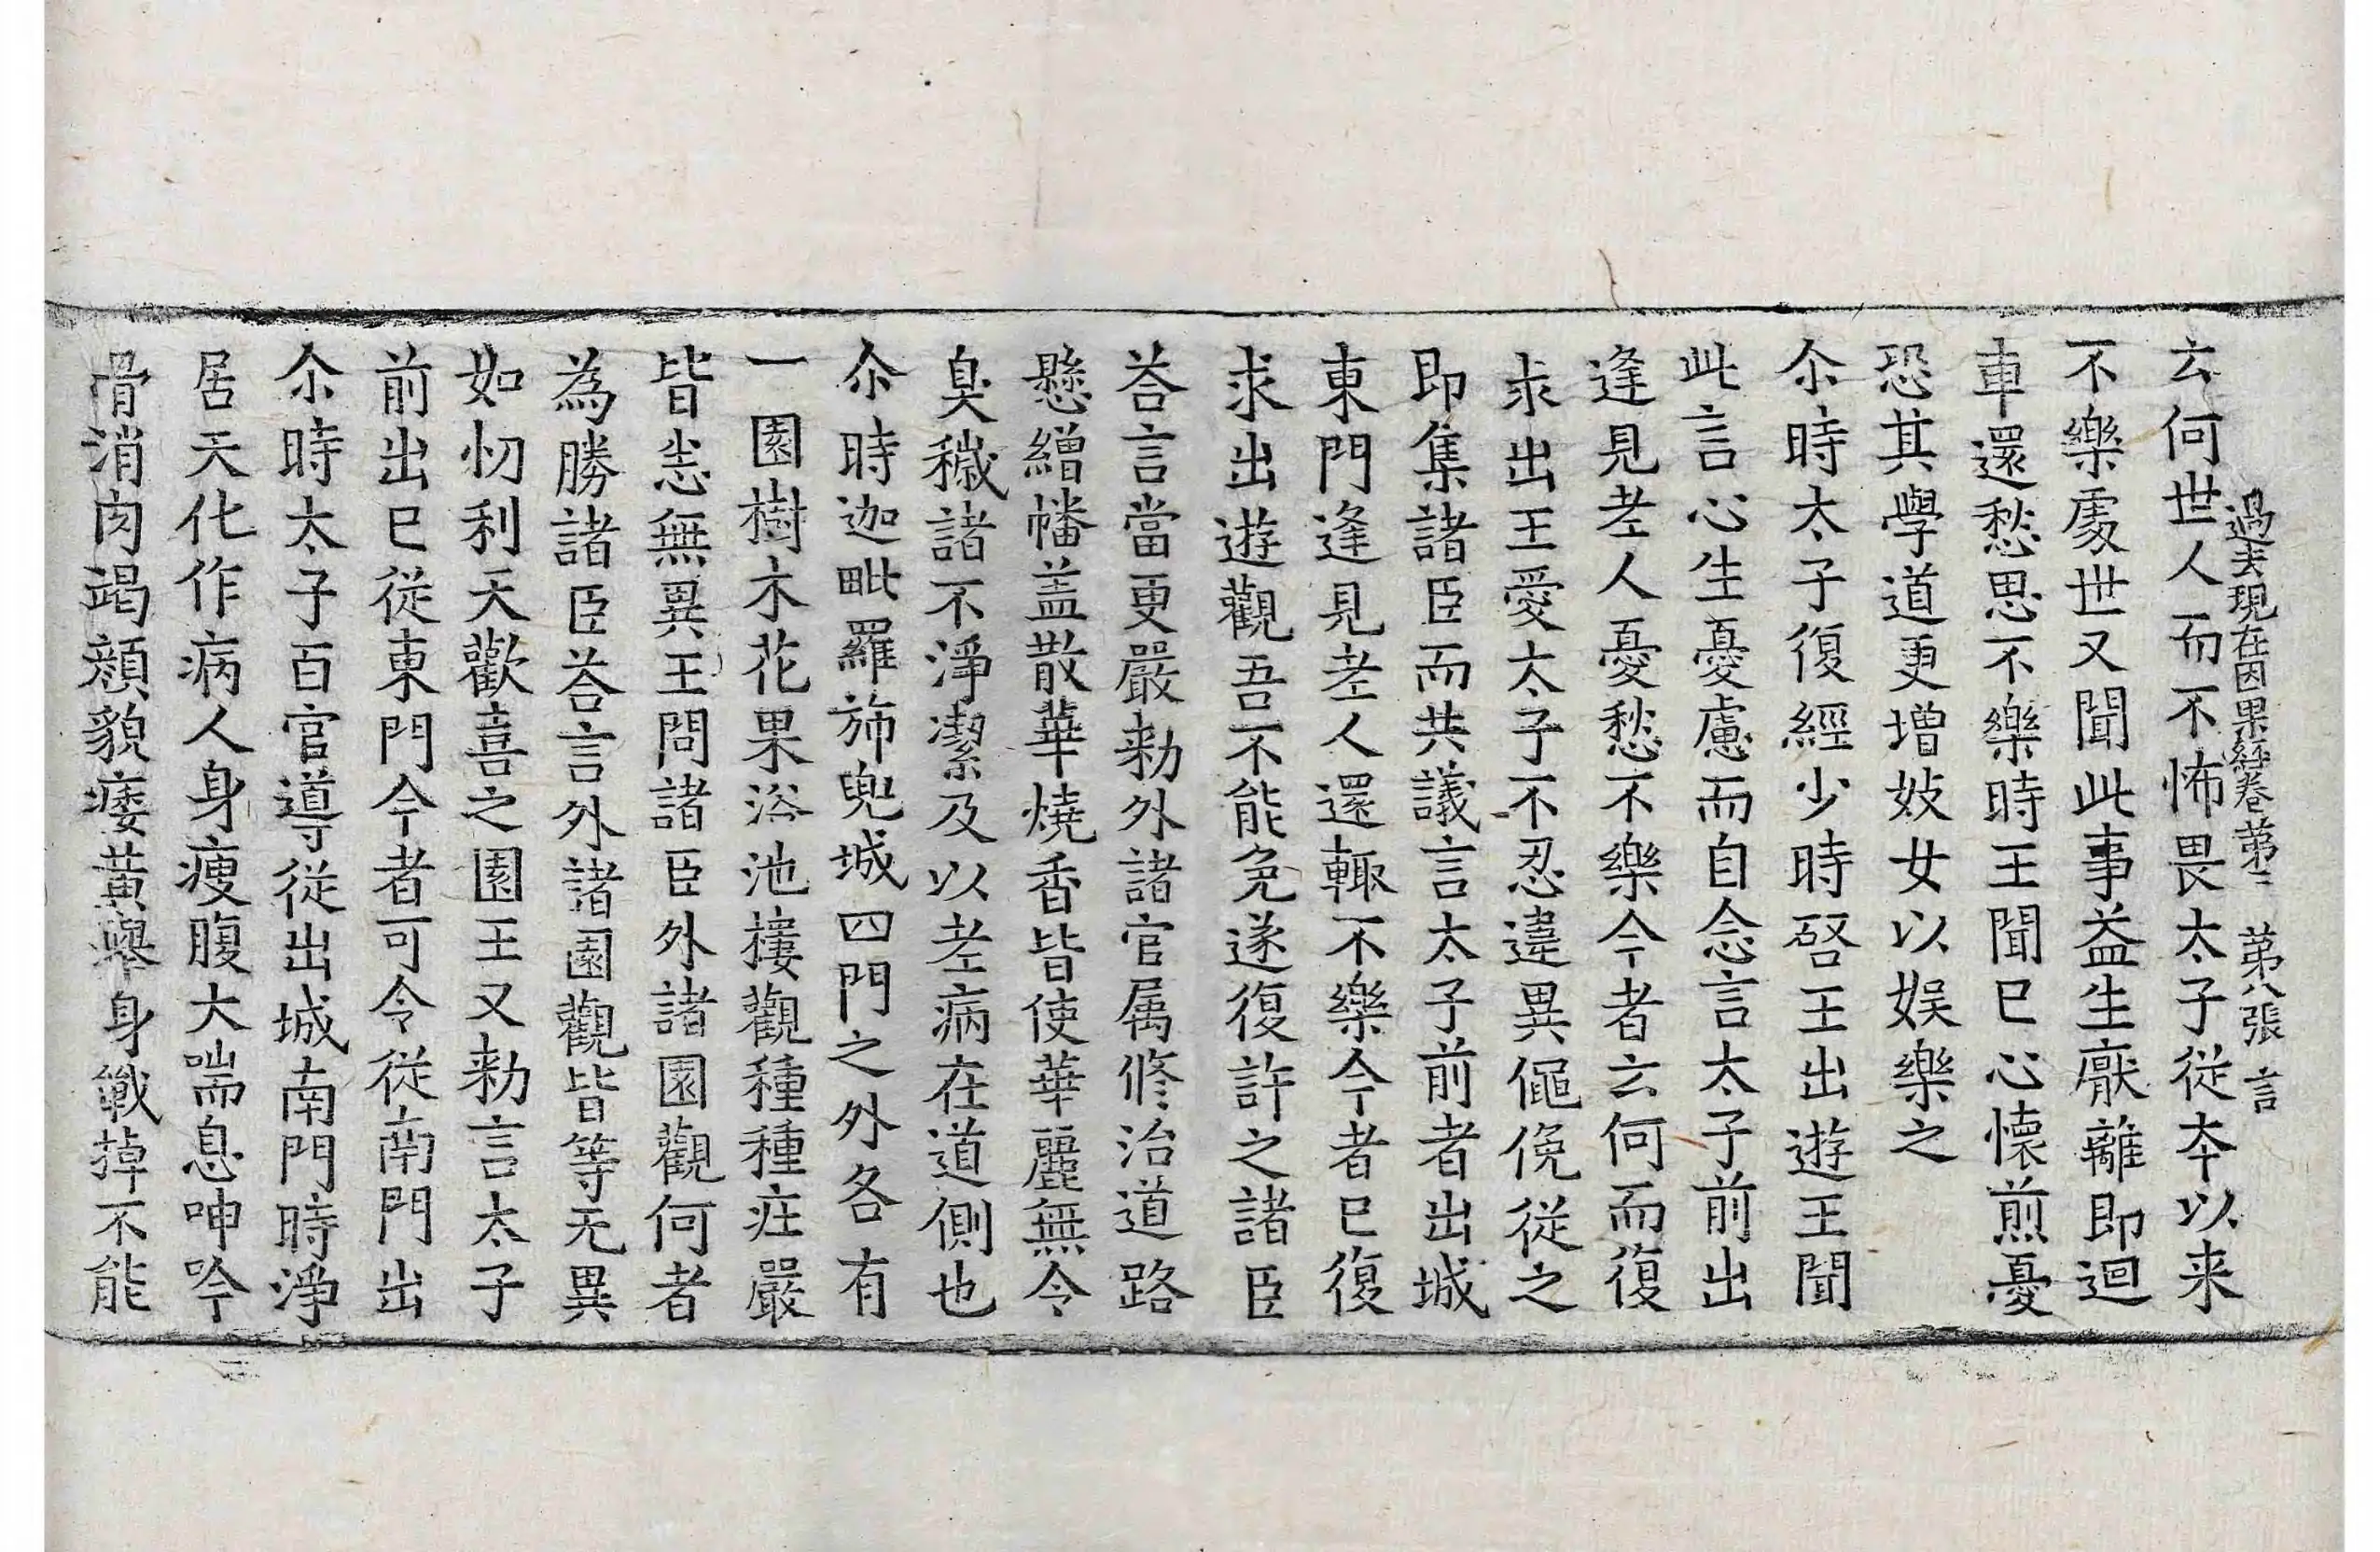 過去現在因果經卷第二 第八張 言
云何世人而不怖畏太子從夲以来
不樂處世又聞此事益生厭離即迴
車還愁思不樂時王聞已心懷煎憂
恐其學道更增妓女以娯樂之
尒時太子復經少時啓王出遊王聞
此言心生憂慮而自念言太子前出
逢見老人憂愁不樂今者云何而復
求出王愛太子不忍違異僶俛從之
即集諸臣而共議言太子前者出城
東門逢見老人還輙不樂今者已復
求出遊觀吾不能免遂復許之諸臣
荅言當更嚴勑外諸官属修治道路
懸繒幡盖散華燒香皆使華麗無令
臭穢諸不淨潔及以老病在道側也
尒時迦毗羅斾兜城四門之外各有
一園樹木花果浴池樓觀種種庄嚴
皆悉無異王問諸臣外諸園觀何者
為勝諸臣荅言外諸園觀皆等无異
如忉利天歡喜之園王又勑言太子
前出已從東門今者可令從南門出
尒時太子百官導從出城南門時淨
居天化作病人身瘦腹大喘息呻吟
骨消肉竭顏貌痿黃舉身戰掉不能